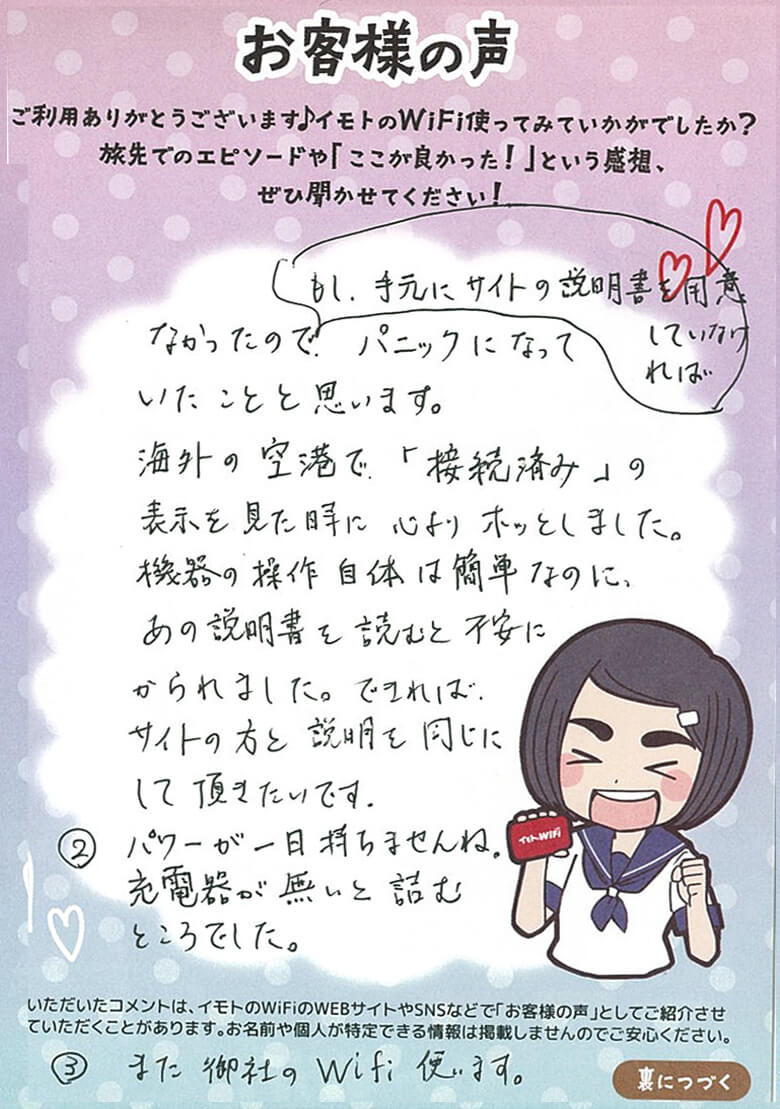 お客様の声
ご利用ありがとうございます♪イモトのWiFi使ってみていかがでしたか?
旅先でのエピソードや「ここが良かった!」という感想、
ぜひ聞かせてください!
もし、手元にサイトの説明書を用意
していなけ
れば
なかったので、パニックになって
いたことと思います。
海外の空港で、「接続済み」の
表示を見た時に心よりホッとしました。
機器の操作自体は簡単なのに、
あの説明書を読むと不安に
かられました。できれば、
サイトの方と説明を同じに
して頂きたいです。
② パワーが一日持ちませんね。
充電器が無いと詰む
ところでした。
イモトのWiFi
いただいたコメントは、イモトのWiFiのWEBサイトやSNSなどで「お客様の声」としてご紹介させ
ていただくことがあります。お名前や個人が特定できる情報は掲載しませんのでご安心ください。
③ また御社のWifi使います。
裏につづく